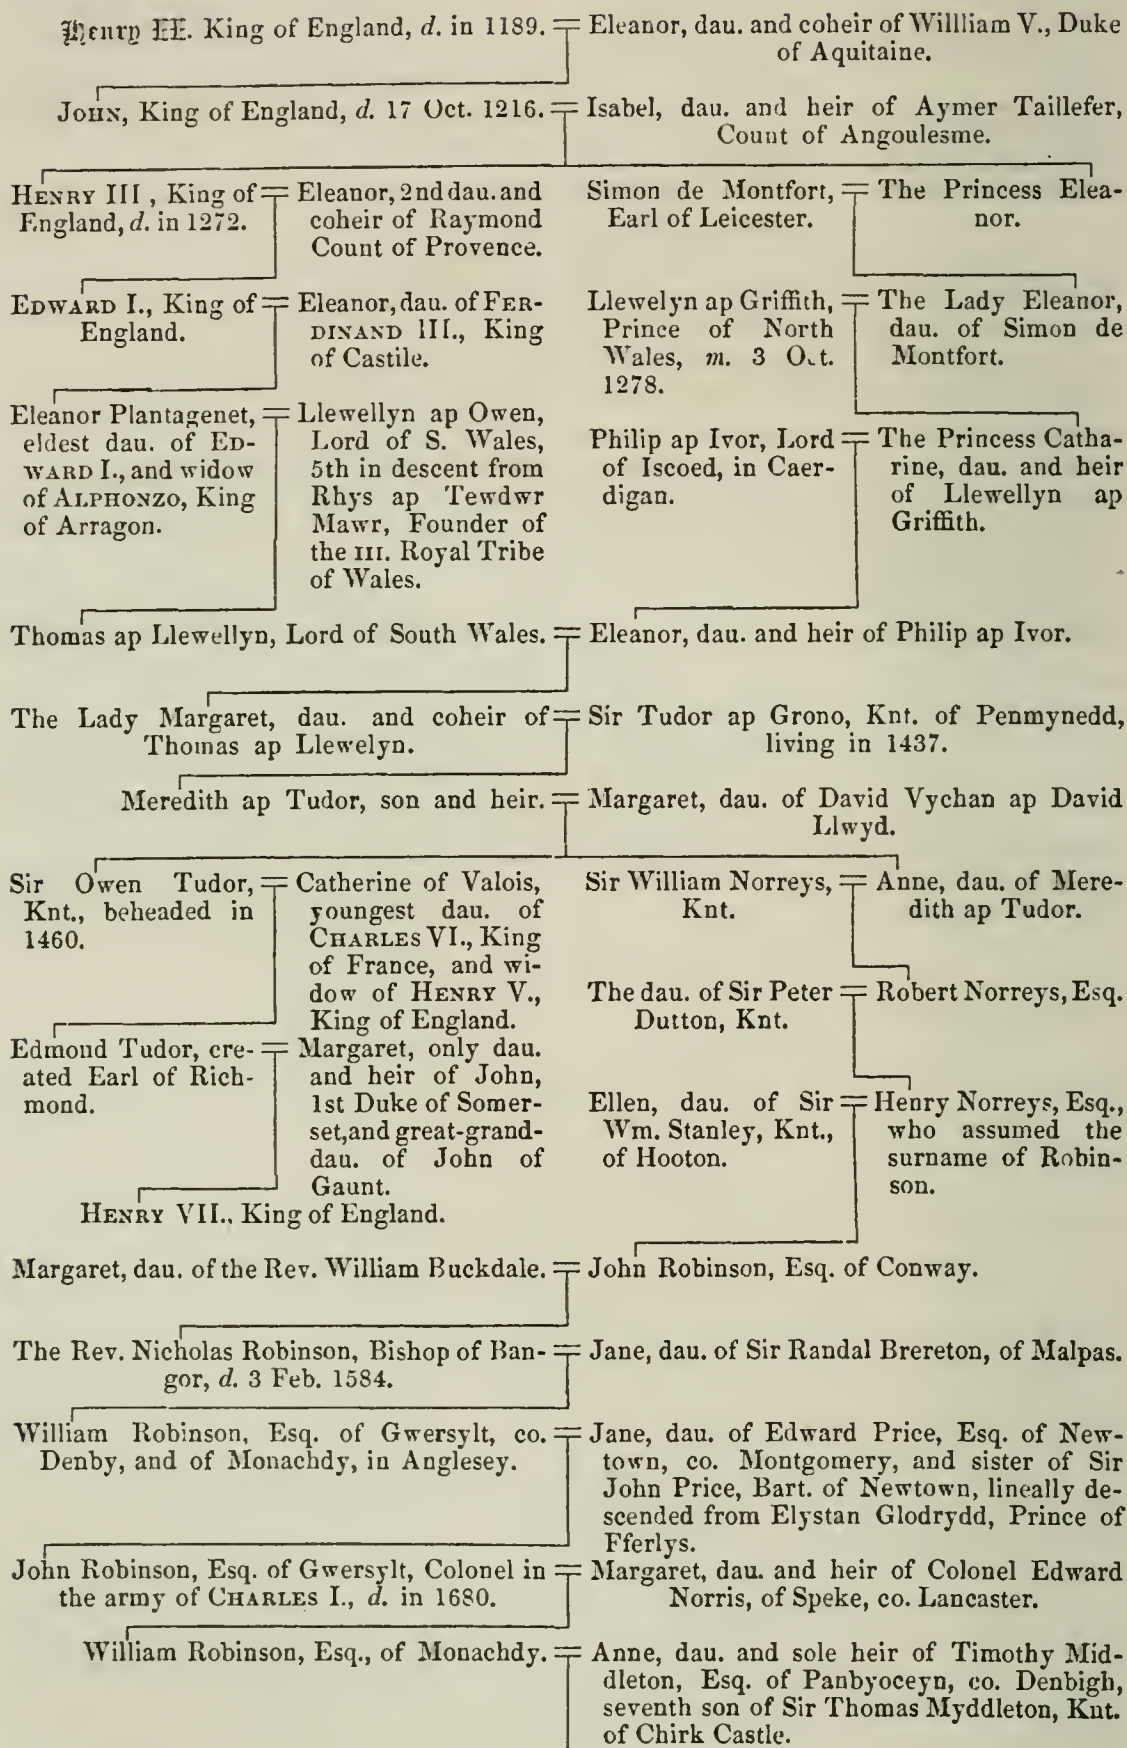 Henry II. King of England, d. in 1189. = Eleanor, dau. and coheir of Willliam V., Duke
of Aquitaine.
JOHN, King of England, d. 17 Oct. 1216. = Isabel, dau. and heir of Aymer Taillefer,
Count of Angoulesme.
HENRY III , King of
England, d. in 1272.
= Eleanor, 2nd dau. and
coheir of Raymond
Count of Provence.
Simon de Montfort,
Earl of Leicester.
= The Princess Elea-
nor.
EDWARD I., King of
England.
= Eleanor, dau. of FER-
DINAND III., King
of Castile.
Llewelyn ap Griffith,
Prince of North
Wales, m. 3 Oct.
1278.
= The Lady Eleanor,
dau. of Simon de
Montfort.
Eleanor Plantagenet,
eldest dau. of ED-
WARD I., and widow
of ALPHONZO, King
of Arragon.
= Llewellyn ap Owen,
Lord of S. Wales,
5th in descent from
Rhys ap Tewdwr
Mawr, Founder of
the III. Royal Tribe
of Wales.
Philip ap Ivor, Lord
of Iscoed, in Caer-
digan.
= The Princess Catha-
rine, dau. and heir
of Llewellyn ap
Griffith.
Thomas ap Llewellyn, Lord of South Wales. = Eleanor, dau. and heir of Philip ap Ivor.
The Lady Margaret, dau. and coheir of
Thomas ap Llewelyn.
= Sir Tudor ap Grono, Knt. of Penmynedd,
living in 1437.
Meredith ap Tudor, son and heir. = Margaret, dau. of David Vychan ap David
Llwyd.
Sir Owen Tudor,
Knt., beheaded in
1460.
= Catherine of Valois,
youngest dau. of
CHARLES VI., King
of France, and wi-
dow of HENRY V.,
King of England.
Sir William Norreys,
Knt.
= Anne, dau. of Mere-
dith ap Tudor.
The dau. of Sir Peter
Dutton, Knt.
= Robert Norreys, Esq.
Edmond Tudor, cre-
ated Earl of Rich-
mond.
= Margaret, only dau.
and heir of John,
1st Duke of Somer-
set,and great-grand-
dau. of John of
Gaunt.
Ellen, dau. of Sir
Wm. Stanley, Knt.,
of Hooton.
= Henry Norreys, Esq.,
who assumed the
surname of Robin-
son.
HENRY VII., King of England.
Margaret, dau. of the Rev. William Buckdale. = John Robinson, Esq. of Conway.
The Rev. Nicholas Robinson, Bishop of Ban-
gor, d. 3 Feb. 1584.
= Jane, dau. of Sir Randal Brereton, of Malpas.
William Robinson, Esq. of Gwersylt, co.
Denby, and of Monachdy, in Anglesey.
= Jane, dau. of Edward Price, Esq. of New-
town, co. Montgomery, and sister of Sir
John Price, Bart. of Newtown, lineally de-
scended from Elystan Glodrydd, Prince of
Fferlys.
John Robinson, Esq. of Gwersylt, Colonel in
the army of CHARLES I., d. in 1680.
= Margaret, dau. and heir of Colonel Edward
Norris, of Speke, co. Lancaster.
William Robinson, Esq., of Monachdy. = Anne, dau. and sole heir of Timothy Mid-
dleton, Esq. of Panbyoceyn, co. Denbigh,
seventh son of Sir Thomas Myddleton, Knt.
of Chirk Castle.